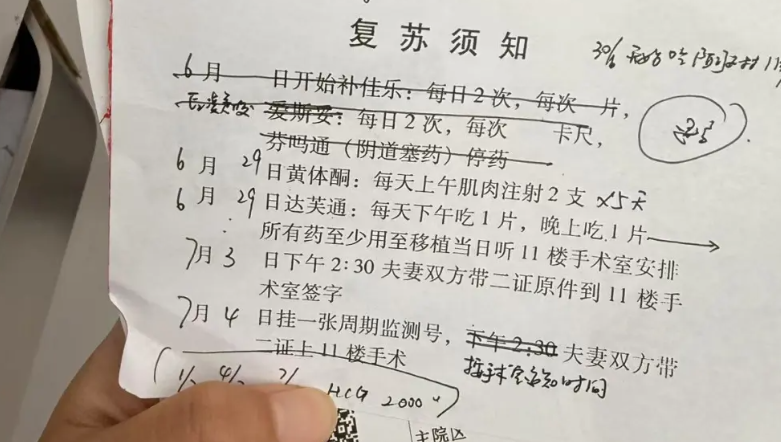 复苏须知
30/6
6月 日开始补佳乐：每日2次，每次 片，
爱斯妥：每日2次，每次 卡尺，
芬吗通（阴道塞药）停药
6月29日黄体酮：每天上午肌肉注射2支 x5天
6月29日达芙通：每天下午吃1片，晚上吃1片
所有药至少用至移植当日听11楼手术室安排
7月3日下午2:30夫妻双方带二证原件到11楼手
术室签字
7月4日挂一张周期监测号，下午2:30夫妻双方带
二证上11楼手术 按手术室通知时间
HCG 2000u
主院区